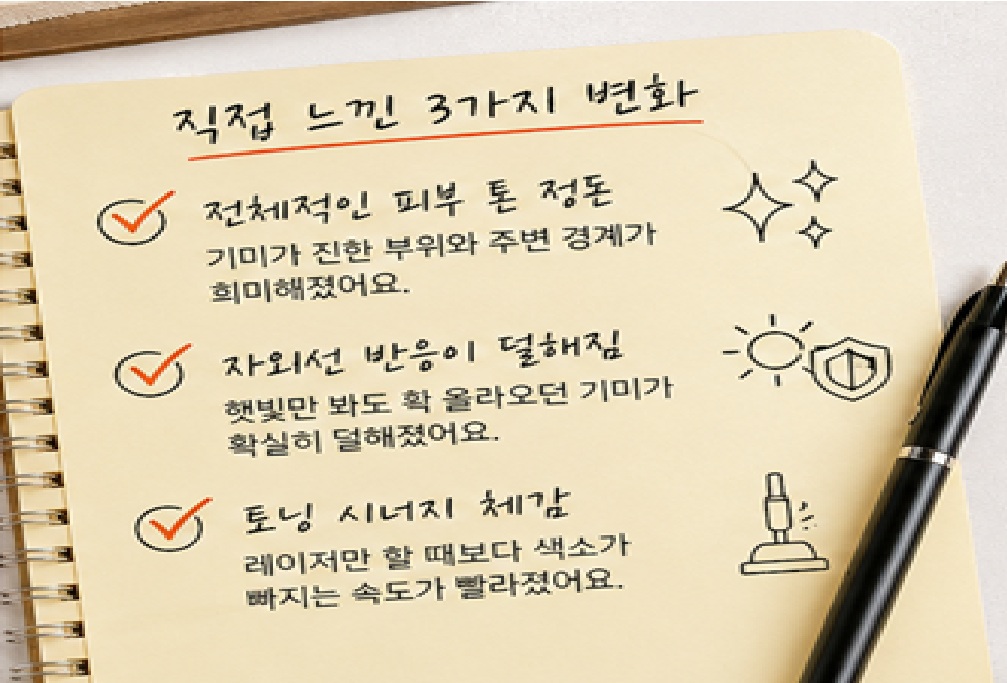 직접 느낀 3가지 변화
전체적인 피부 톤 정돈
기미가 진한 부위와 주변 경계가
희미해졌어요.
자외선 반응이 덜해짐
햇빛만 봐도 확 올라오던 기미가
확실히 덜해졌어요.
토닝 시너지 체감
레이저만 할 때보다 색소가
빠지는 속도가 빨라졌어요.